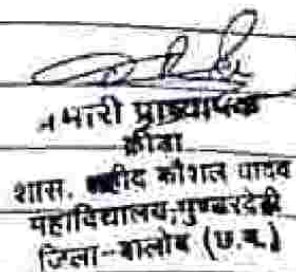 प्रभारी प्राध्यापक
क्रीडा
शास. शहीद कौशल यादव
महाविद्यालय,गुण्डरदेही
जिला-बालोद (छ.ग.)